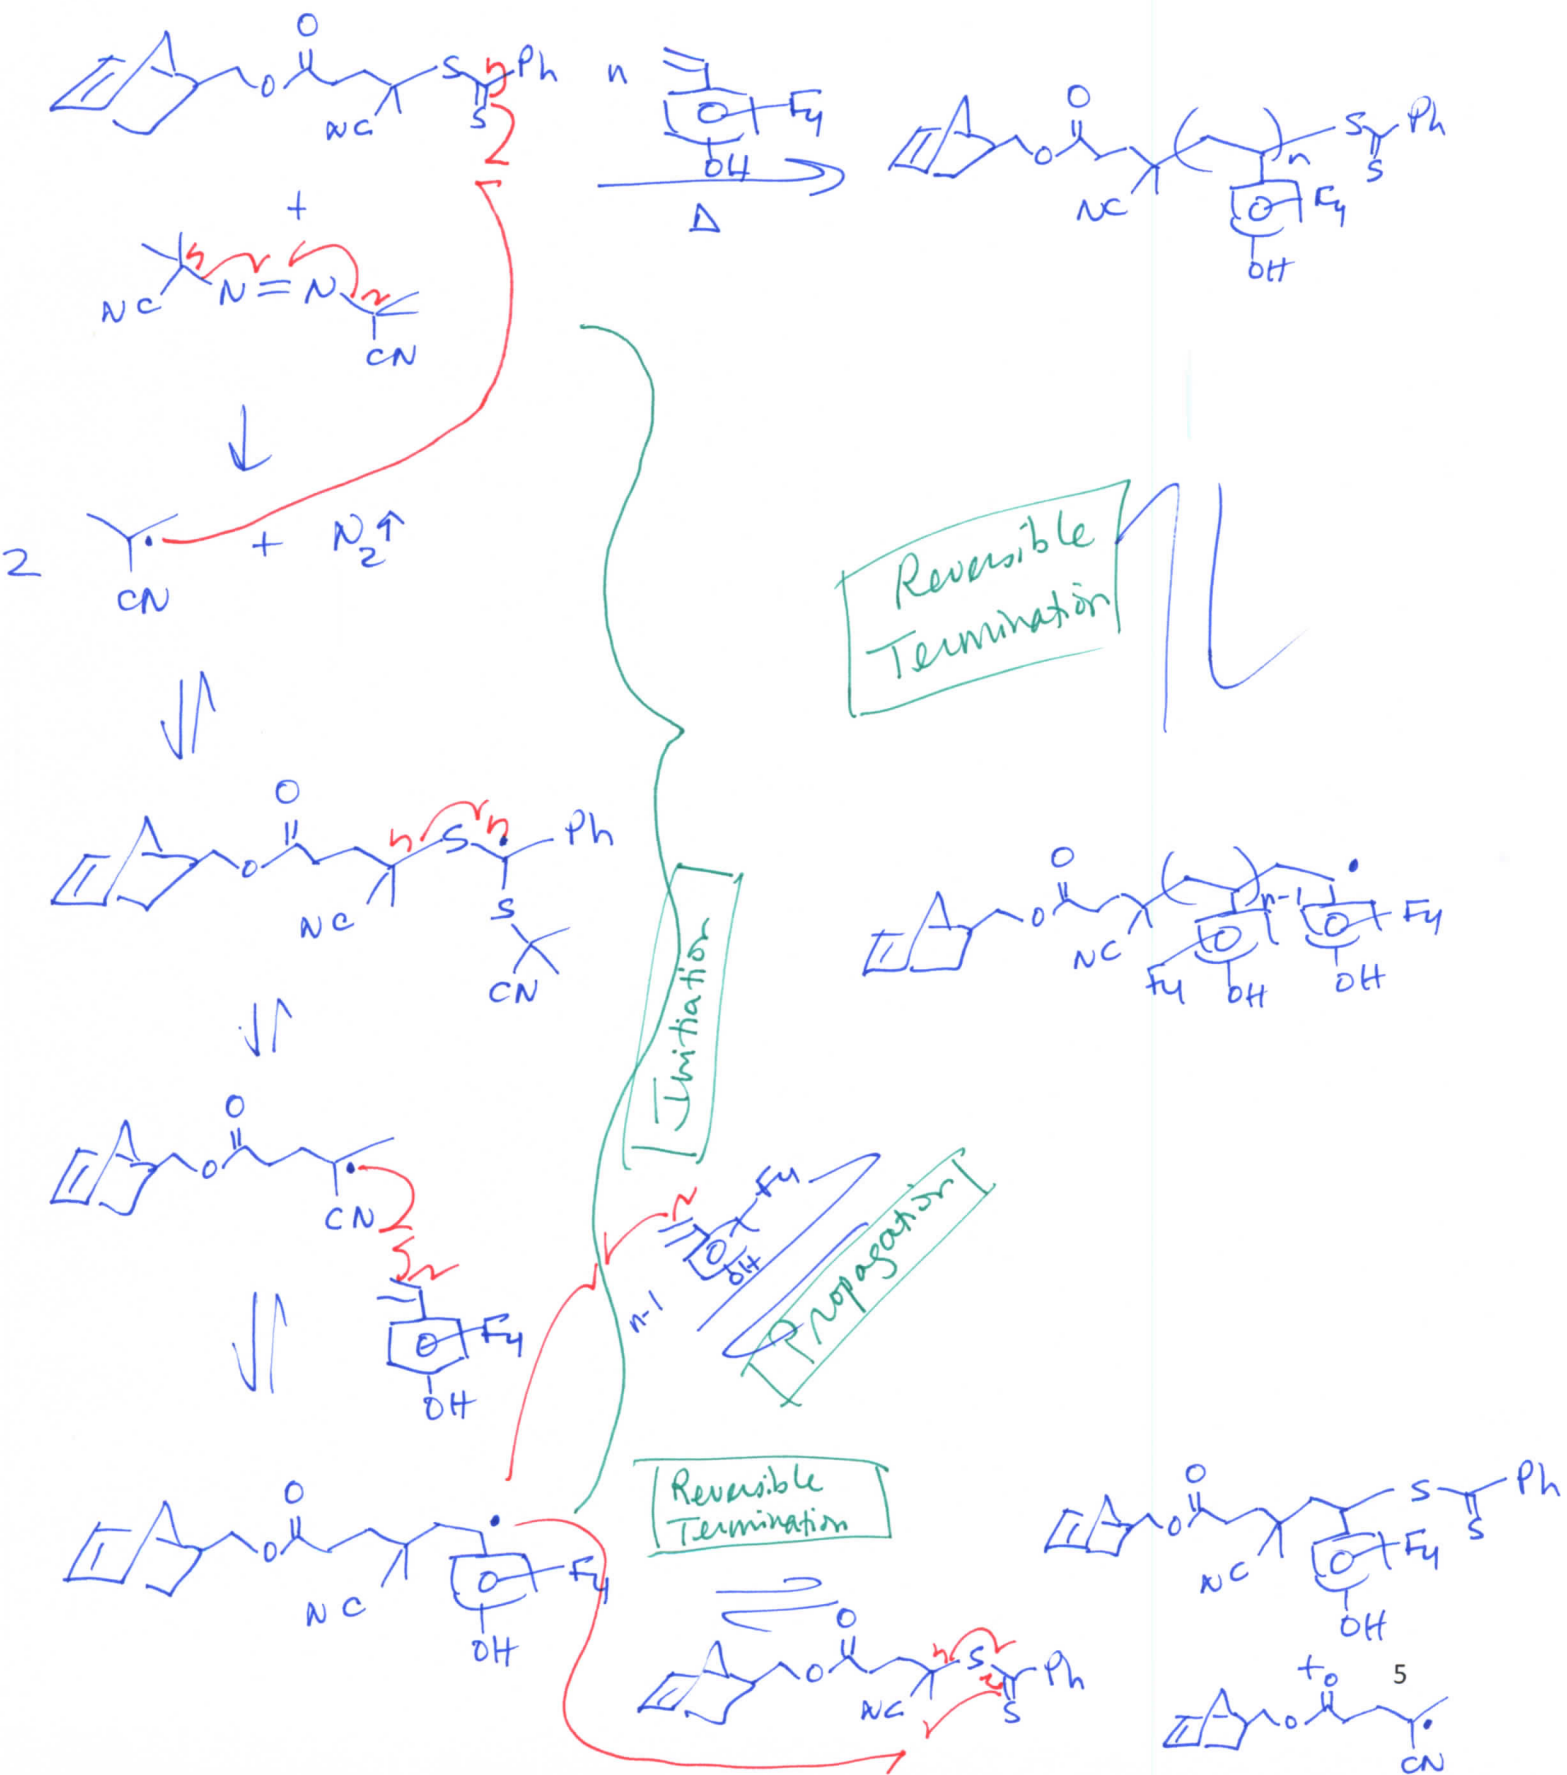 O
O
S
Ph
NC
S
n
F4
OH
Δ
O
O
NC
n
F4
OH
S
Ph
S
+
NC
N=N
CN
2
CN
+ N2↑
Reversible
Termination
O
O
NC
S
Ph
S
CN
O
O
NC
n-1
F4
OH
F4
OH
Initiation
O
O
CN
F4
OH
F4
OH
n-1
Propagation
O
O
NC
F4
OH
Reversible
Termination
O
O
NC
S
Ph
S
O
O
NC
F4
OH
S
Ph
S
+
5
O
O
CN